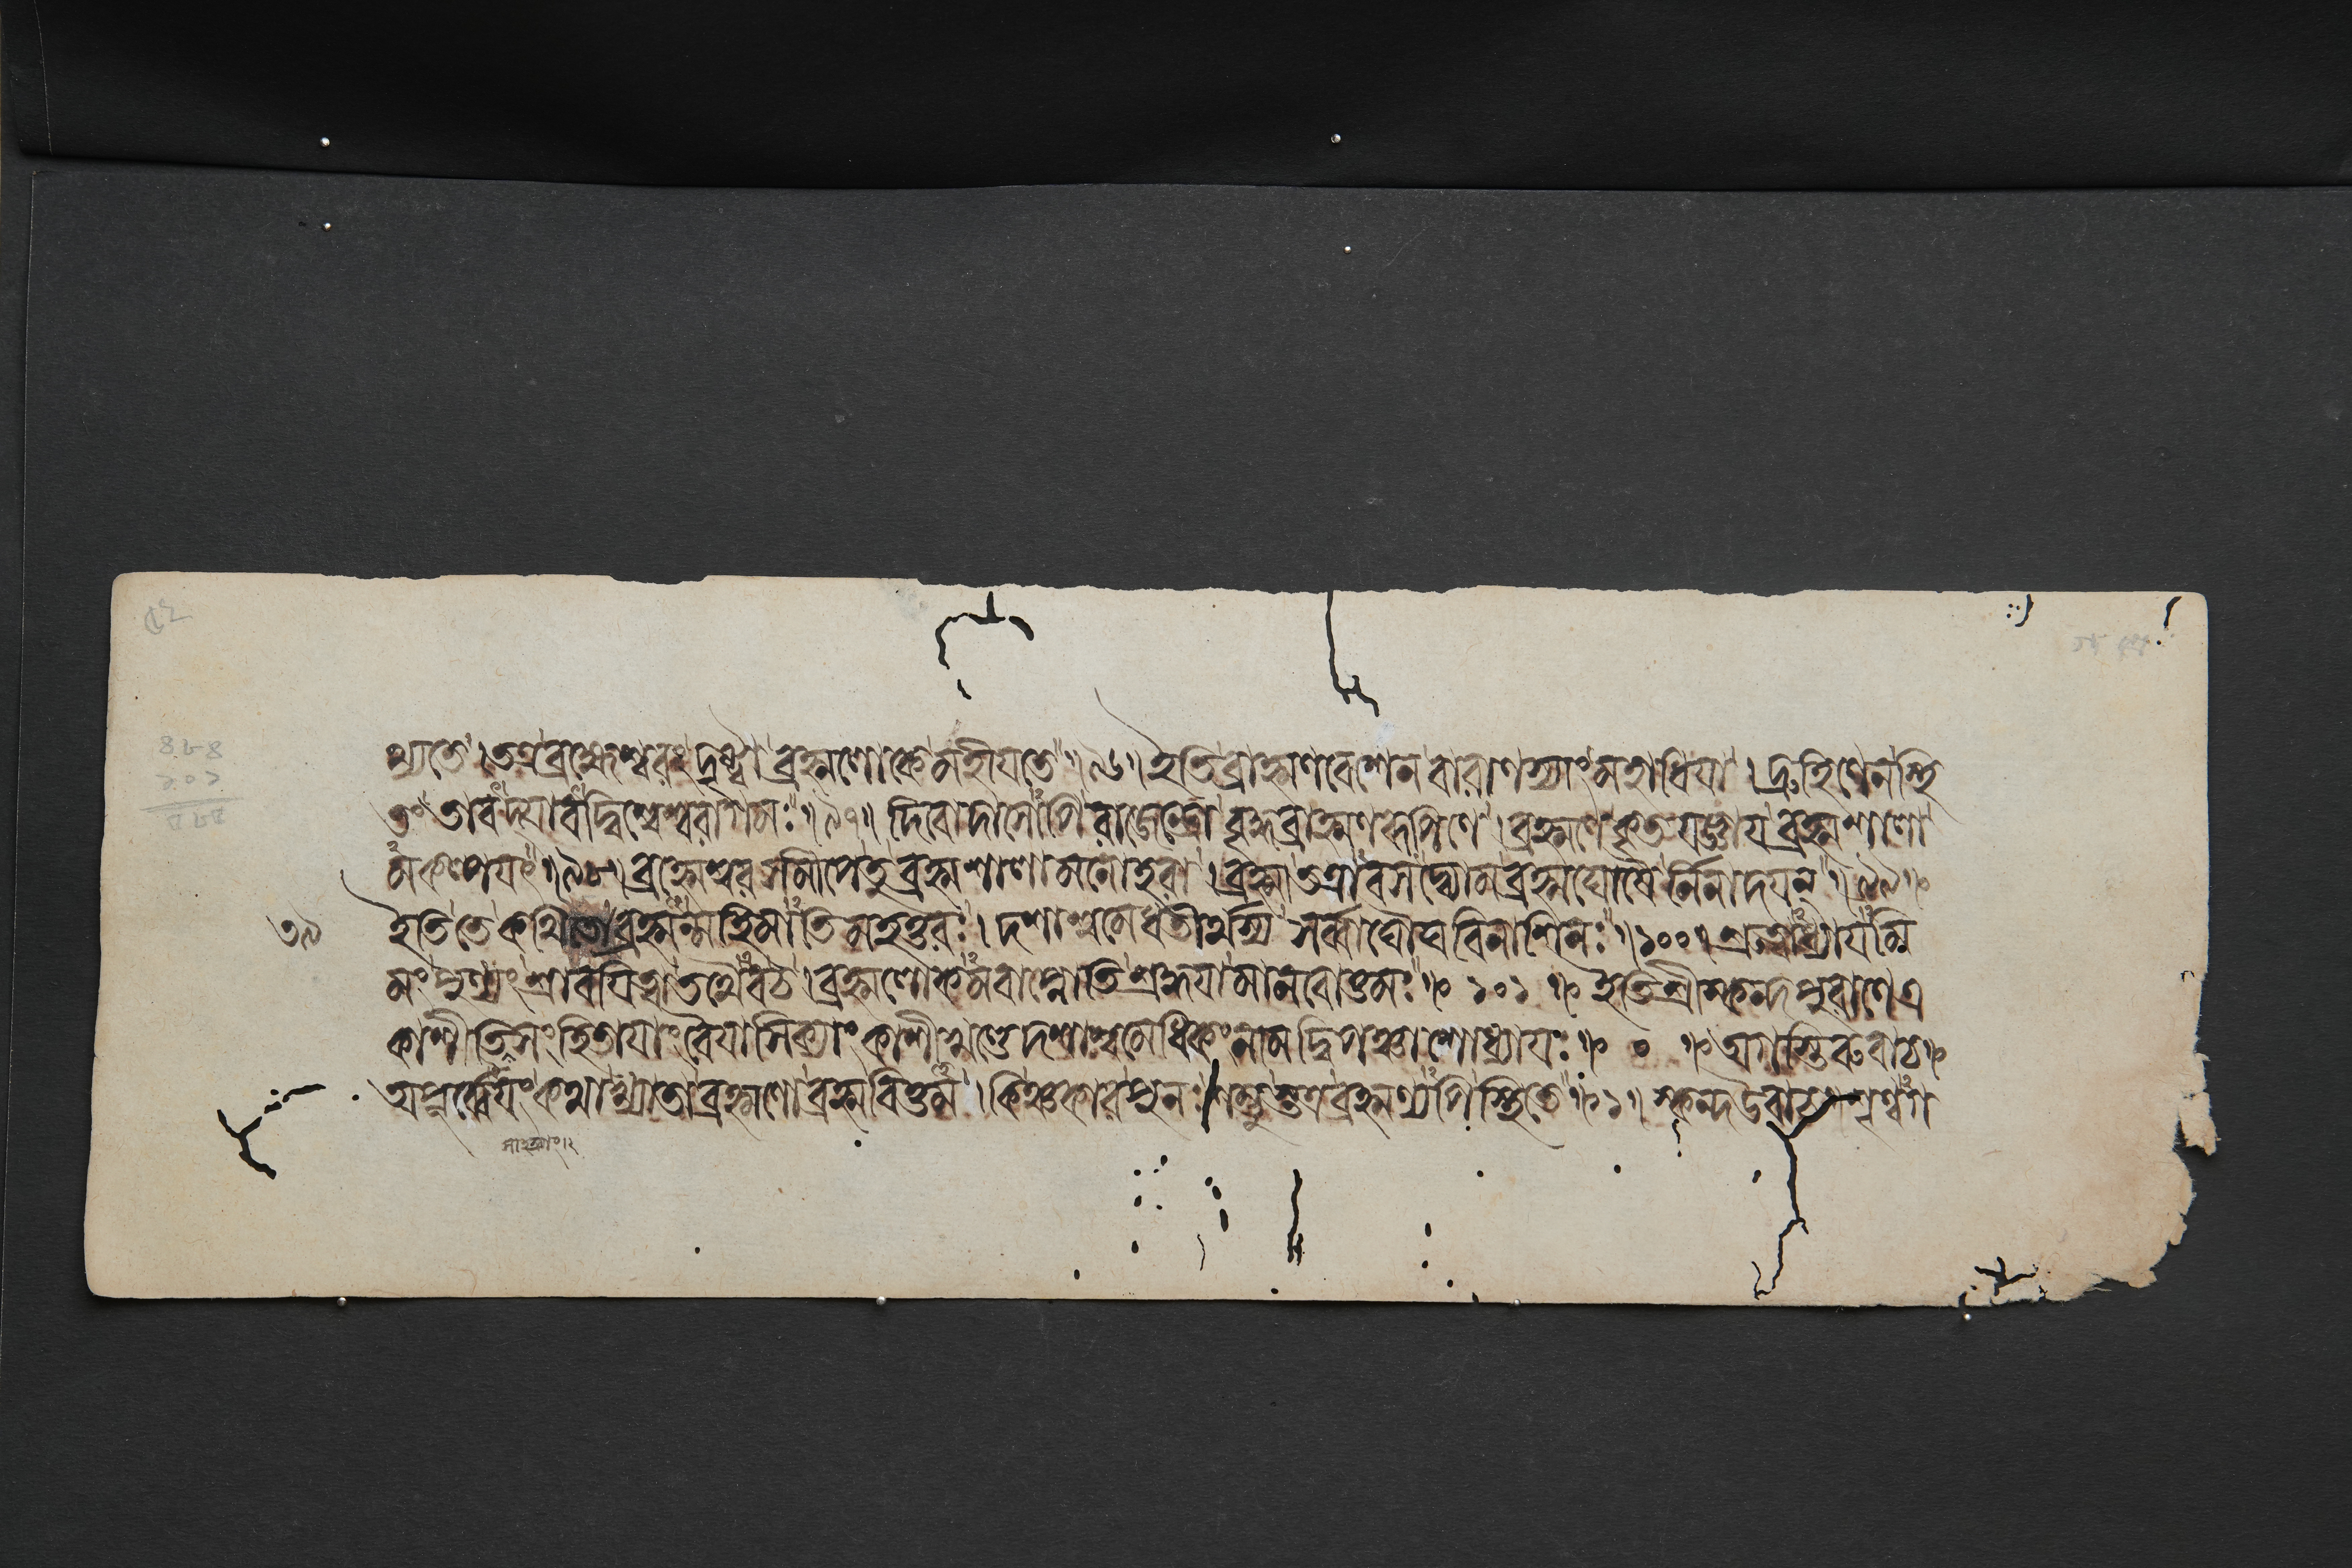 ধ্যতে । তত্র ব্রহ্মেশ্বরং দৃষ্ট্বা ব্রহ্মলোকে মহীয়তে ॥ ৯৬ ॥ ইতি ব্রাহ্মণবেশেন বারাণস্যাং মহাধিয়া । দ্রুহিণেন স্থি
তং তাবদ্যাবদ্বিশ্বেশ্বরাগমঃ ॥ ৯৭ ॥ দিবোদাসোপি রাজেন্দ্রো বৃদ্ধব্রাহ্মণরূপিণে । ব্রহ্মণে কৃতযজ্ঞায় ব্রহ্মশালা
মকল্পয়ৎ ॥ ৯৮ ॥ ব্রহ্মেশ্বরসমীপে তু ব্রহ্মশালা মনোহরা । ব্রহ্মা তত্রাবসদ্ব্যোম ব্রহ্মঘোষৈর্নিনাদয়ন্ ॥ ৯৯ ॥
৩৯
ইতি তে কথিতো ব্রহ্মন্মহিমাতিমহত্তরঃ । দশাশ্বমেধতীর্থস্য সর্ব্বাঘৌঘবিনাশিনঃ ॥ ১০০ ॥ শ্রুত্বাধ্যায়মি
মং পুণ্যং শ্রাবয়িত্বা তথৈব চ । ব্রহ্মলোকমবাপ্নোতি শ্রদ্ধয়া মানবোত্তমঃ ॥ ১০১ ॥ ইতি শ্রীস্কন্দপুরাণে এ
কাশীতিসংহিতায়াং বৈয়াসিক্যাং কাশীখণ্ডে দশাশ্বমেধিকং নাম দ্বিপঞ্চাশোধ্যায়ঃ ॥ ০ ॥ অগস্তিরুবাচ ॥
অপূর্ব্বেয়ং কথা খ্যাতা ব্রহ্মণো ব্রহ্মবিত্তম । কিঞ্চকার পুনঃ শম্ভুস্তত্র ব্রহ্মণ্যপি স্থিতে ॥ ১ ॥ স্কন্দ উবাচ শৃণ্বগ
৪৮৪
১০১
৫৮৫
৫২